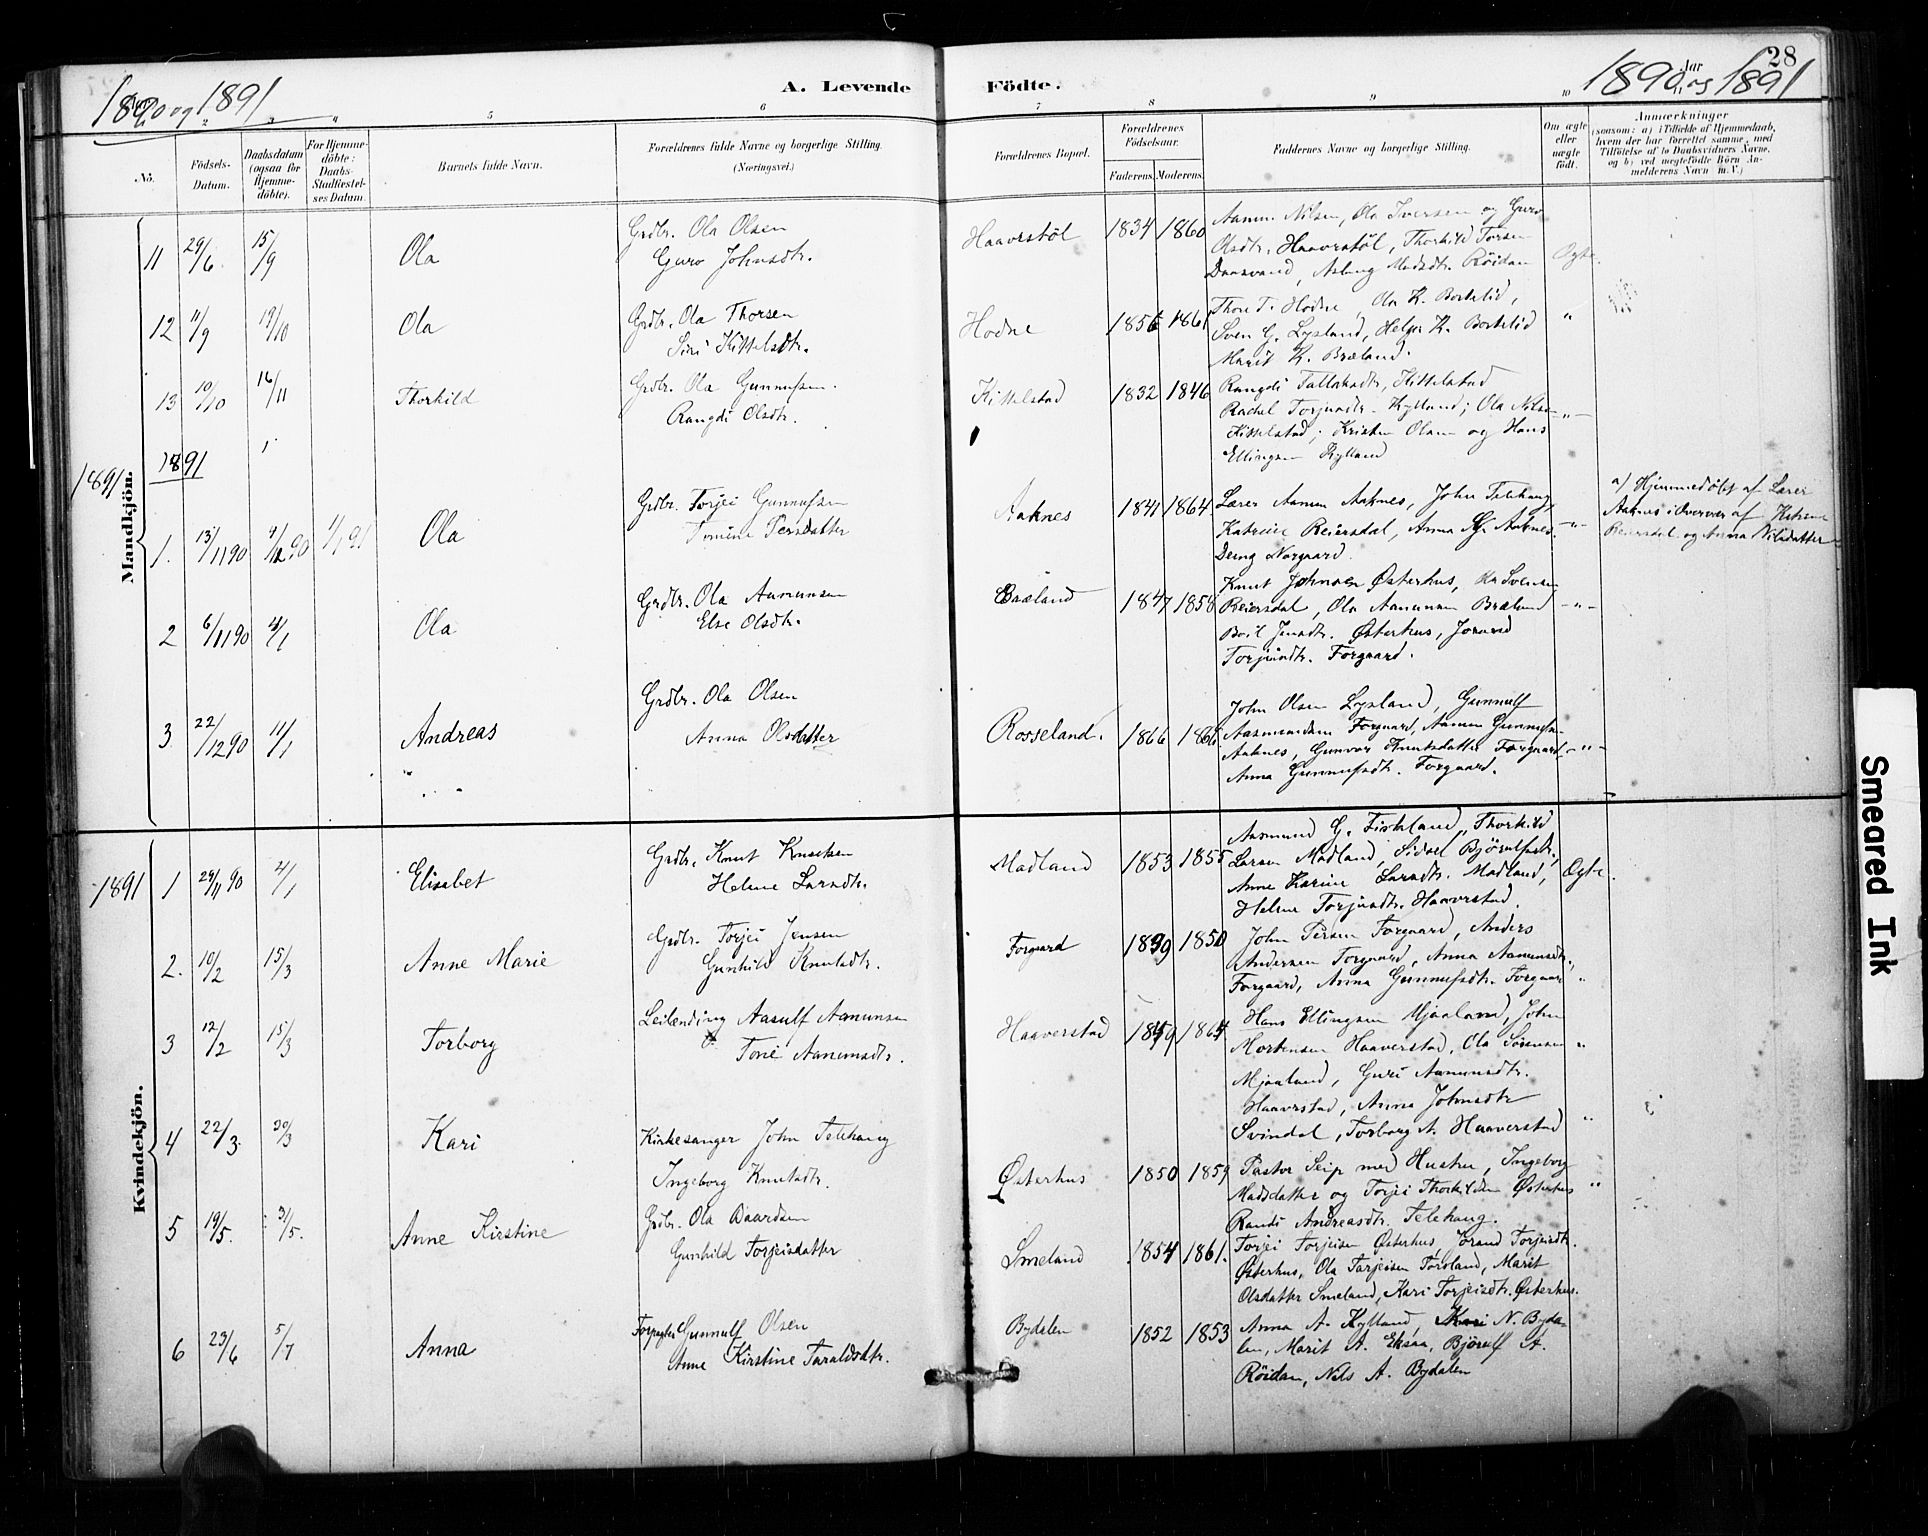 1890 og 1891
A. Levende
Födte.
Aar
1890 og 1891
28
2
3
4
5
6
7
8
9
10
No.
Födsels-
Datum.
Daabsdatum
(ogsaa for
Hjemme-
döbte).
For Hjemme-
döbte:
Daabs-
Stadfæstel-
ses Datum.
Barnets fulde Navn.
Forældrenes fulde Navne og borgerlige Stilling.
(Næringsvei.)
Forældrenes Bopæl.
Forældrenes
Födselsaar.
Faderens.
Moderens.
Faddernes Navne og borgerlige Stilling.
Om ægte
eller
uægte
födt.
Anmærkninger
(saasom: a) i Tilfælde af Hjemmedaab,
hvem der har forrettet samme, med
Tilföielse af to Daabsvidners Navne,
og b) ved uegtefödte Börn An-
melderens Navn m.V.)
Mandkjön.
11 29/6 15/9 Ola
Grdbr. Ola Olsen
Guro Johnsdtr.
Haaverstöl 1834 1860
Aamun Nilsen, Ola Iversen og Guro
Olsdtr. Haaverstöl, Thorkild Torsen
Daasvand, Aslaug Madsdtr. Röidam
Ægte.
12 11/9 19/10 Ola
Grdbr. Ola Thorsen
Siri Kittelsdtr.
Hodne 1856 1861
Thore T. Hodne, Ola K. Borkelid,
Sven G. Lysland, Helge K. Borkelid
Marit K. Bræland.
"
13 10/10 16/11 Thorkild
Grdbr. Ola Gunnufsen.
Rangdi Olsdtr.
Kittelstad 1832 1846
Rangdi Tallaksdtr, Kittelstad
Rachel Torjusdtr. Kylland; Ola Nilsen
Kittelstad; Kristen Olsen og Hans
Ellingsen Kylland
-"-
1891
1891
1. 13/11 90 4/12 90 1/1 91 Ola
Grdbr. Torjei Gunnufsen
Tomine Persdatter
Aaknes 1841 1864
Lærer Aamun Aaknes, John Telehaug,
Katrine Beiersdal, Anna G. Aaknes.
Norgaard.
-"-
a) Hjemmedöbt af Lærer
Aaknes i Overvær af Katrine
Beiersdal og Anna Nilsdatter
2 6/11 90 4/1 Ola
Grdbr. Ola Aamunsen
Else Olsdtr.
Bræland 1847 1858
Knut Johnsen Østerhus, Ola Svensen
Beiersdal, Ola Aamunsen Bræland
Boil Jensdtr. Østerhus, Jorand
Torjusdtr. Forgaard.
-"-
3 22/12 90 11/1 Andreas
Grdbr. Ola Olsen
Anna Olsdatter
Rosseland. 1866 1866
John Olsen Lysland, Gunnulf
Aasmundsen Forgaard, Aamun Gunnufsen
Aaknes, Gunvor Knutsdatter Forgaard,
Anna Gunnufsdtr. Forgaard.
-"-
Kvindekjön.
1891
1 29/11 90 4/1 Elisabet
Grdbr. Knut Knutsen
Helene Larsdtr.
Madland 1853 1855
Aasmund G. Fiskland, Thorkild
Larsen Madland, Sidsel Bjørulfsdtr.,
Anne Karine Larsdtr. Madland,
Helene Torjusdtr. Haaverstad.
Ægte.
2. 10/2 15/3 Anne Marie
Grdbr. Torjei Jensen
Gunhild Knutsdtr.
Forgaard 1839 1850
John Persen Forgaard, Anders
Andersen Forgaard, Anna Aamunsdtr.,
Forgaard, Anna Gunnufsdtr. Forgaard
"
3 12/2 15/3 Torborg
Leilending Aasulf Aamunsen
Tone Aanunsdtr.
Haaverstad 1859 1864
Hans Ellingsen Mjaaland, John
Mortensen Haaverstad, Ola Sörensen
Mjaaland, Guri Aamunsdtr.
Haaverstad, Anna Johnsdtr
Svindal, Torborg A. Haaverstad
"
4 22/3 30/3 Kari
Kirkesanger John Telehaug
Ingeborg Knutsdtr.
Østerhus 1850 1859
Pastor Seip med Hustru, Ingeborg
Madsdatter og Torjei Thorkildsen Østerhus
Randi Andreasdtr. Telehaug.
"
5 19/5. 31/5. Anne Kirstine
Grdbr. Ola Baardsen
Gunhild Torjeisdatter
Smeland 1854 1861.
Torjei Torjeisen Østerhus, Jorand Torjeisdtr.
Østerhus, Ola Tarjeisen Forsland, Marit
Olsdatter Smeland, Kari Torjeisdtr. Østerhus.
6 23/6 5/7 Anna
Forpagter Gunnulf Olsen
Anne Kirstine Taraldsdtr.
Bydalen 1852 1853
Anna A. Kylland, Kari N. Byda-
len, Marit A. Eksaa, Bjørulf A.
Röidam, Nels A. Bydalen
Smeared Ink